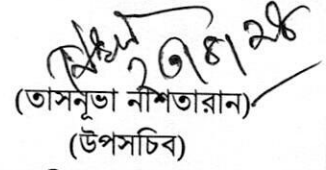 ২৩/৪/২৪
(তাসনূভা নাশতারান)
(উপসচিব)